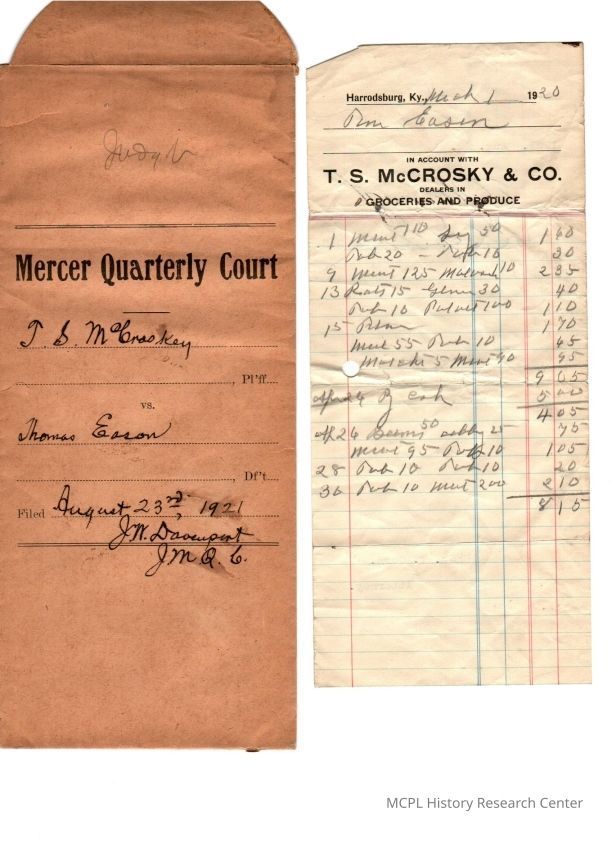 Judg't
Mercer Quarterly Court
T. S. McCroskey
, Pl'ff.
vs.
Thomas Eason
, Df't.
Filed August 23rd, 1921
J.W. Davenport
J M Q. C.
Harrodsburg, Ky., Mch 1 1920
Eason
IN ACCOUNT WITH
T. S. McCROSKY & CO.
DEALERS IN
GROCERIES AND PRODUCE
1 Meat 110 50 1 60
20 10 30
9 Meat 125 10 2 35
13 15 30 40
10 100 1 10
15 1 70
Meat 55 10 65
5 Meat 90 95
9 05
Apr 24 By Cash 5 00
4 05
Ap 26 50 25 75
Meat 95 10 1 05
28 10 10 20
30 10 Meat 200 2 10
8 15
MCPL History Research Center